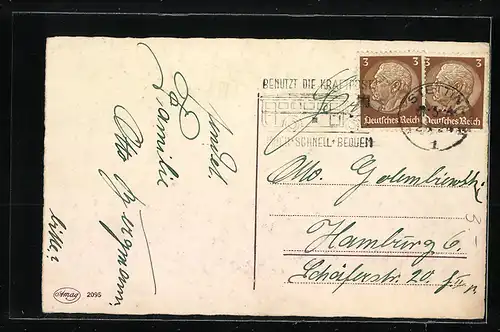 BENUTZT DIE KRAFTPOST
SCHNELL + BEQUEM
3 3
Deutsches Reich Deutsches Reich
STETTIN
1
Familie
Otto Bergmann.
Otto. Golembiewski
3-
Hamburg 6.
Schäferstr 20 II
Amag 2095